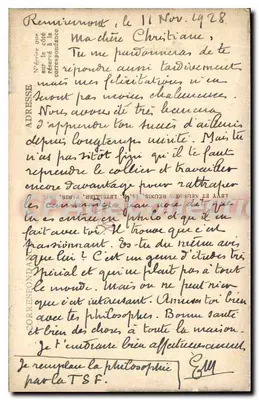 Remiremont, le 11 Nov. 1928
Ma chère Christiane,
Tu me pardonneras de te
répondre aussi tardivement
mais mes félicitations n'en
seront pas moins chaleureuses.
Nous avons été très heureux
d'apprendre ton succès d'ailleurs
depuis longtemps mérité. Mais tu
n'as pas sitôt fini qu'il te faut
reprendre le collier et travailler
encore davantage pour rattraper
les
tu es
fait avec toi. Il trouve que c'est
passionnant. Es-tu du même avis
que lui ? C'est un genre d'études très
spécial et qui ne plaît pas à tout
le monde. Mais on ne peut nier
que c'est intéressant. Amuse toi bien
avec tes philosophes. Bonne santé
et bien des choses à toute la maison.
Je t'embrasse bien affectueusement
Je remplace la philosophie
par la TSF.
ADRESSE
N'écrire que
sur le côté
réservé à la
correspondance
CORRESPONDANCE
LEVY ET NEURDEIN RÉUNIS, 44, RUE LETELLIER, PARIS